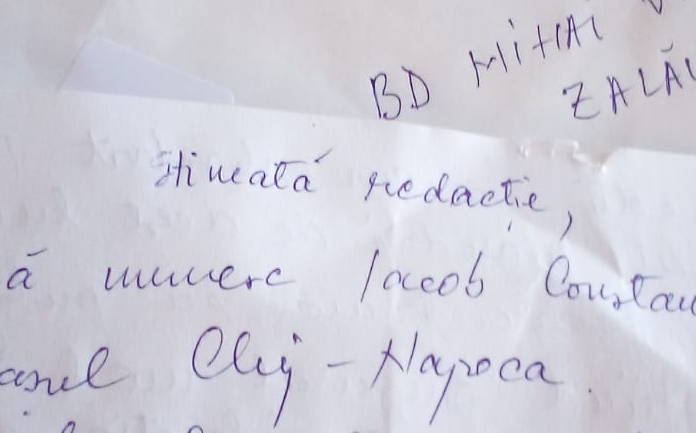 BD MIHAI
ZALĂU
Stimată redacție,
ă numesc Iacob Constan
așul Cluj-Napoca.